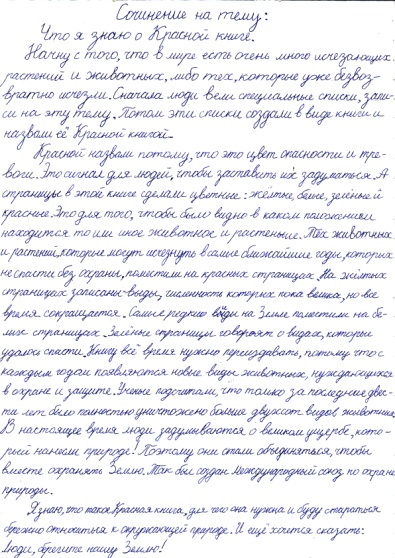 Сочинение на тему:
Что я знаю о Красной книге.
Начну с того, что в мире есть очень много исчезающих
растений и животных, либо тех, которые уже безвоз-
вратно исчезли. Сначала люди вели специальные списки, запи-
си на эту тему. Потом эти списки создали в виде книги и
назвали её Красной книгой.
Красной назвали потому, что это цвет опасности и тре-
воги. Это сигнал для людей, чтобы заставить их задуматься. А
страницы в этой книге сделали цветные: жёлтые, белые, зелёные и
красные. Это для того, чтобы было видно в каком положении
находится то или иное животное и растение. Тех животных
и растений, которые могут исчезнуть в самые ближайшие годы, которых
не спасти без охраны, поместили на красных страницах. На жёлтых
страницах записаны виды, численность которых пока велика, но всё
время сокращается. Самые редкие виды на Земле поместили на бе-
лых страницах. Зелёные страницы говорят о видах, которые
удалось спасти. Книгу всё время нужно переиздавать, потому что с
каждым годом появляются новые виды животных, нуждающихся
в охране и защите. Учёные подсчитали, что только за последние двес-
ти лет было полностью уничтожено больше двухсот видов животных.
В настоящее время люди задумываются о великом ущербе, кото-
рый нанесли природе! Поэтому они стали объединяться, чтобы
вместе охранять Землю. Так был создан Международный союз по охране
природы.
Я знаю, что такое Красная книга, для чего она нужна и буду стараться
бережно относиться к окружающей природе. И ещё хочется сказать:
Люди, берегите нашу Землю!